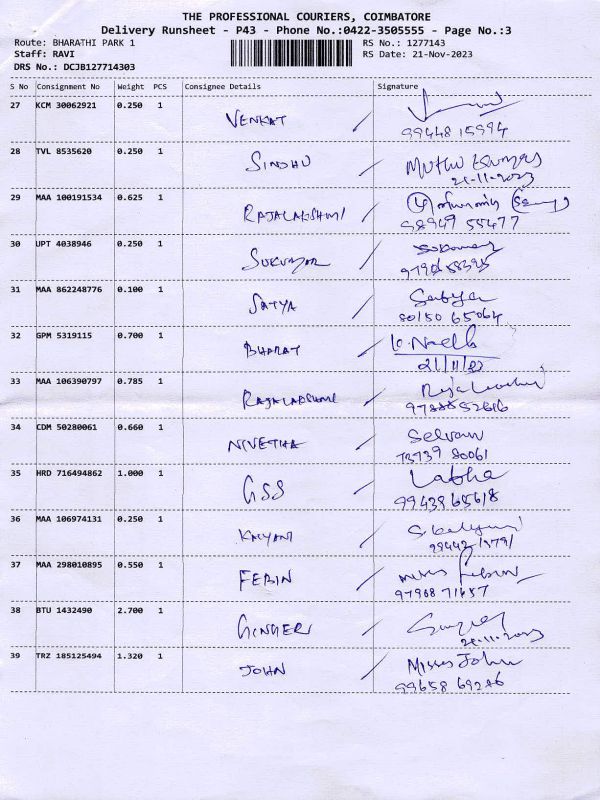 THE PROFESSIONAL COURIERS, COIMBATORE
Delivery Runsheet - P43 - Phone No.:0422-3505555 - Page No.:3
Route: BHARATHI PARK 1 RS No.: 1277143
Staff: RAVI RS Date: 21-Nov-2023
DRS No.: DCJB127714303
S No Consignment No Weight PCS Consignee Details Signature
27 KCM 30062921 0.250 1
VENKAT
99448 15994
28 TVL 8535620 0.250 1
SINDHU Muthu
21-11-2023
29 MAA 100191534 0.625 1
RAJALAKSHMI
98947 55477
30 UPT 4038946 0.250 1
SUKUMAR
31 MAA 862248776 0.100 1
SATYA Satya
80150 65064
32 GPM 5319115 0.700 1
BHARAT
33 MAA 106390797 0.785 1
RAJALAKSHMI
34 CDM 50280061 0.660 1
NIVETHA Selvam
73739 80061
35 HRD 716494862 1.000 1
GSS Latha
99439 65618
36 MAA 106974131 0.250 1
KALYANI
37 MAA 298010895 0.550 1
FEBIN
97908 71657
38 BTU 1432490 2.700 1
GINGER
21-11-2023
39 TRZ 185125494 1.320 1
JOHN Misses John
99658 69286